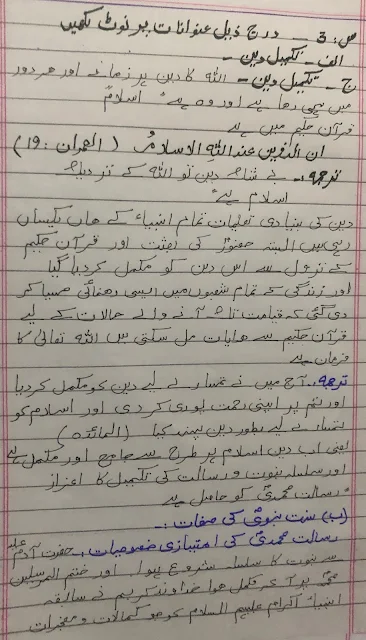 ص: 3 - درج ذیل عنوانات پر نوٹ لکھیں
الف - تکمیل دین -
ج - تکمیل دین - اللہ کا دین ہر زمانے اور ہر دور
میں یہی رہا ہے اور وہ ہے "اسلام"
قرآن حکیم میں ہے
ان الدین عند اللہ الاسلام (العمران : 19)
ترجمہ:- بے شک دین تو اللہ کے نزدیک
اسلام ہے"
دین کی بنیادی تعلیمات تمام انبیاء کے ہاں یکساں
رہی ہیں البتہ حضورؐ کی بعثت اور قرآن حکیم
کے نزول سے اس دین کو مکمل کر دیا گیا
اور زندگی کے تمام شعبوں میں ایسی رھنمائی مہیا کر
دی گئی کہ قیامت تک آنے والے حالات کے لیے
قرآن حکیم سے ہدایات مل سکتی ہیں اللہ تعالیٰ کا
فرمان ہے
ترجمہ: آج میں نے تمہارے لیے دین کو مکمل کر دیا
اور تم پر اپنی نعمت پوری کر دی اور اسلام کو
تمہارے لیے بطور دین پسند کیا (المائدہ)
یعنی اب دین اسلام ہر طرح سے جامع اور مکمل ہے
اور سلسلہ نبوت و رسالت کی تکمیل کا اعزاز
رسالت محمدیؐ کو حاصل ہے
(ب) سنت نبویؐ کی صفات :-
رسالت محمدیؐ کی امتیازی خصوصیات :- حضرت آدم علیہ
سے نبوت کا سلسلہ شروع ہوا اور ختم المرسلین
محمدؐ پر آ کر مکمل ہوا خداوند کریم نے سابقہ
انبیاء اکرام علیہم السلام کو جو کمالات و معجزات